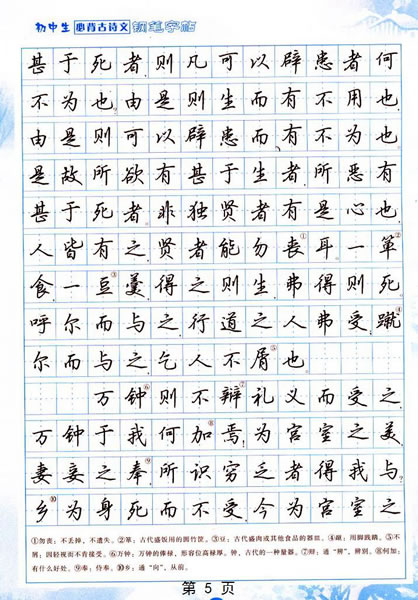 初中生 必背古诗文 钢笔字帖
甚于死者则凡可以辟患者何
不为也由是则生而有不用也
由是则可以辟患而有不为也
是故所欲有甚于生者所恶有
甚于死者.非独贤者有是心也
人皆有之.贤者能勿丧①耳一箪②
食一豆③羹得之则生弗得则死.
呼尔而与之.行道之人弗受.蹴④
尔而与之.乞人不屑⑤也
万钟⑥则不辩⑦礼义而受之.
万钟于我何加⑧焉.为宫室之美
妻妾之奉⑨.所识穷乏者得我与
乡⑩为身死而不受今为宫室之
①勿丧：不丢掉，不遗失。②箪：古代盛饭用的圆竹筐。③豆：古代盛肉或其他食品的器皿。④蹴：用脚践踏。⑤不
屑：因轻视而不肯接受。⑥万钟：万钟的俸禄，形容位高禄厚。钟，古代的一种量器。⑦辩：通“辨”，辨别。⑧何加：
有什么好处。⑨奉：侍奉。⑩乡：通“向”，从前。
第 5 页